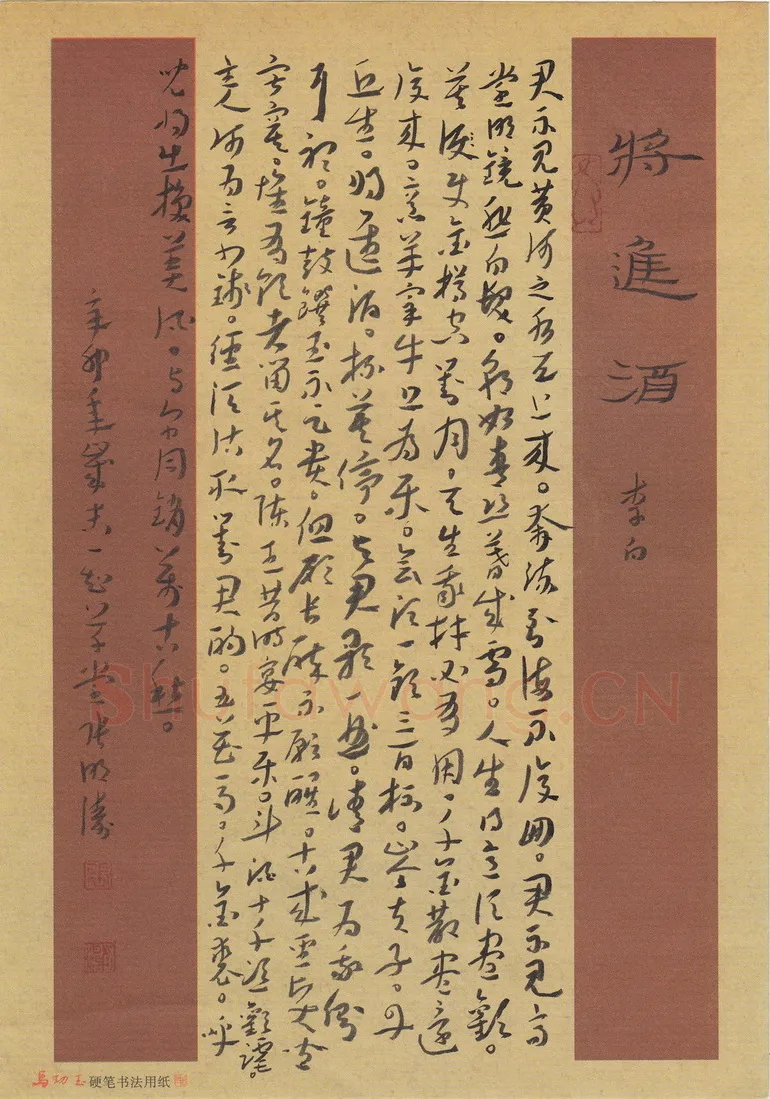 將進酒
李白
君不見黃河之水天上來。奔流到海不復回。君不見高
堂明鏡悲白髮。朝如青絲暮成雪。人生得意須盡歡。
莫使金樽空對月。天生我材必有用。千金散盡還
復來。烹羊宰牛且為樂。會須一飲三百杯。岑夫子。丹
丘生。將進酒。杯莫停。與君歌一曲。請君為我側
耳聽。鐘鼓饌玉不足貴。但願長醉不願醒。古來聖賢皆
寂寞。惟有飲者留其名。陳王昔時宴平樂。斗酒十千恣歡謔。
主人何為言少錢。徑須沽取對君酌。五花馬。千金裘。呼
兒將出換美酒。與爾同銷萬古愁。
辛卯年歲末一草堂張明濤
硬笔书法用纸
Shufawang.CN